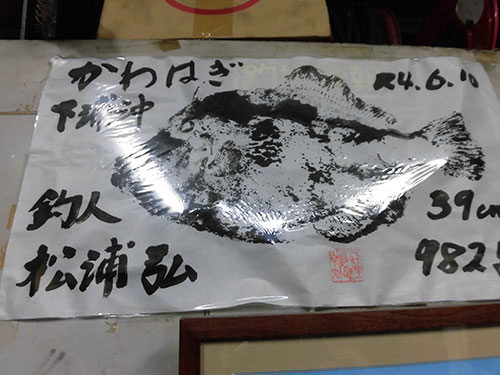 かわはぎ
R4.6.10
釣人
松浦弘
39cm
982